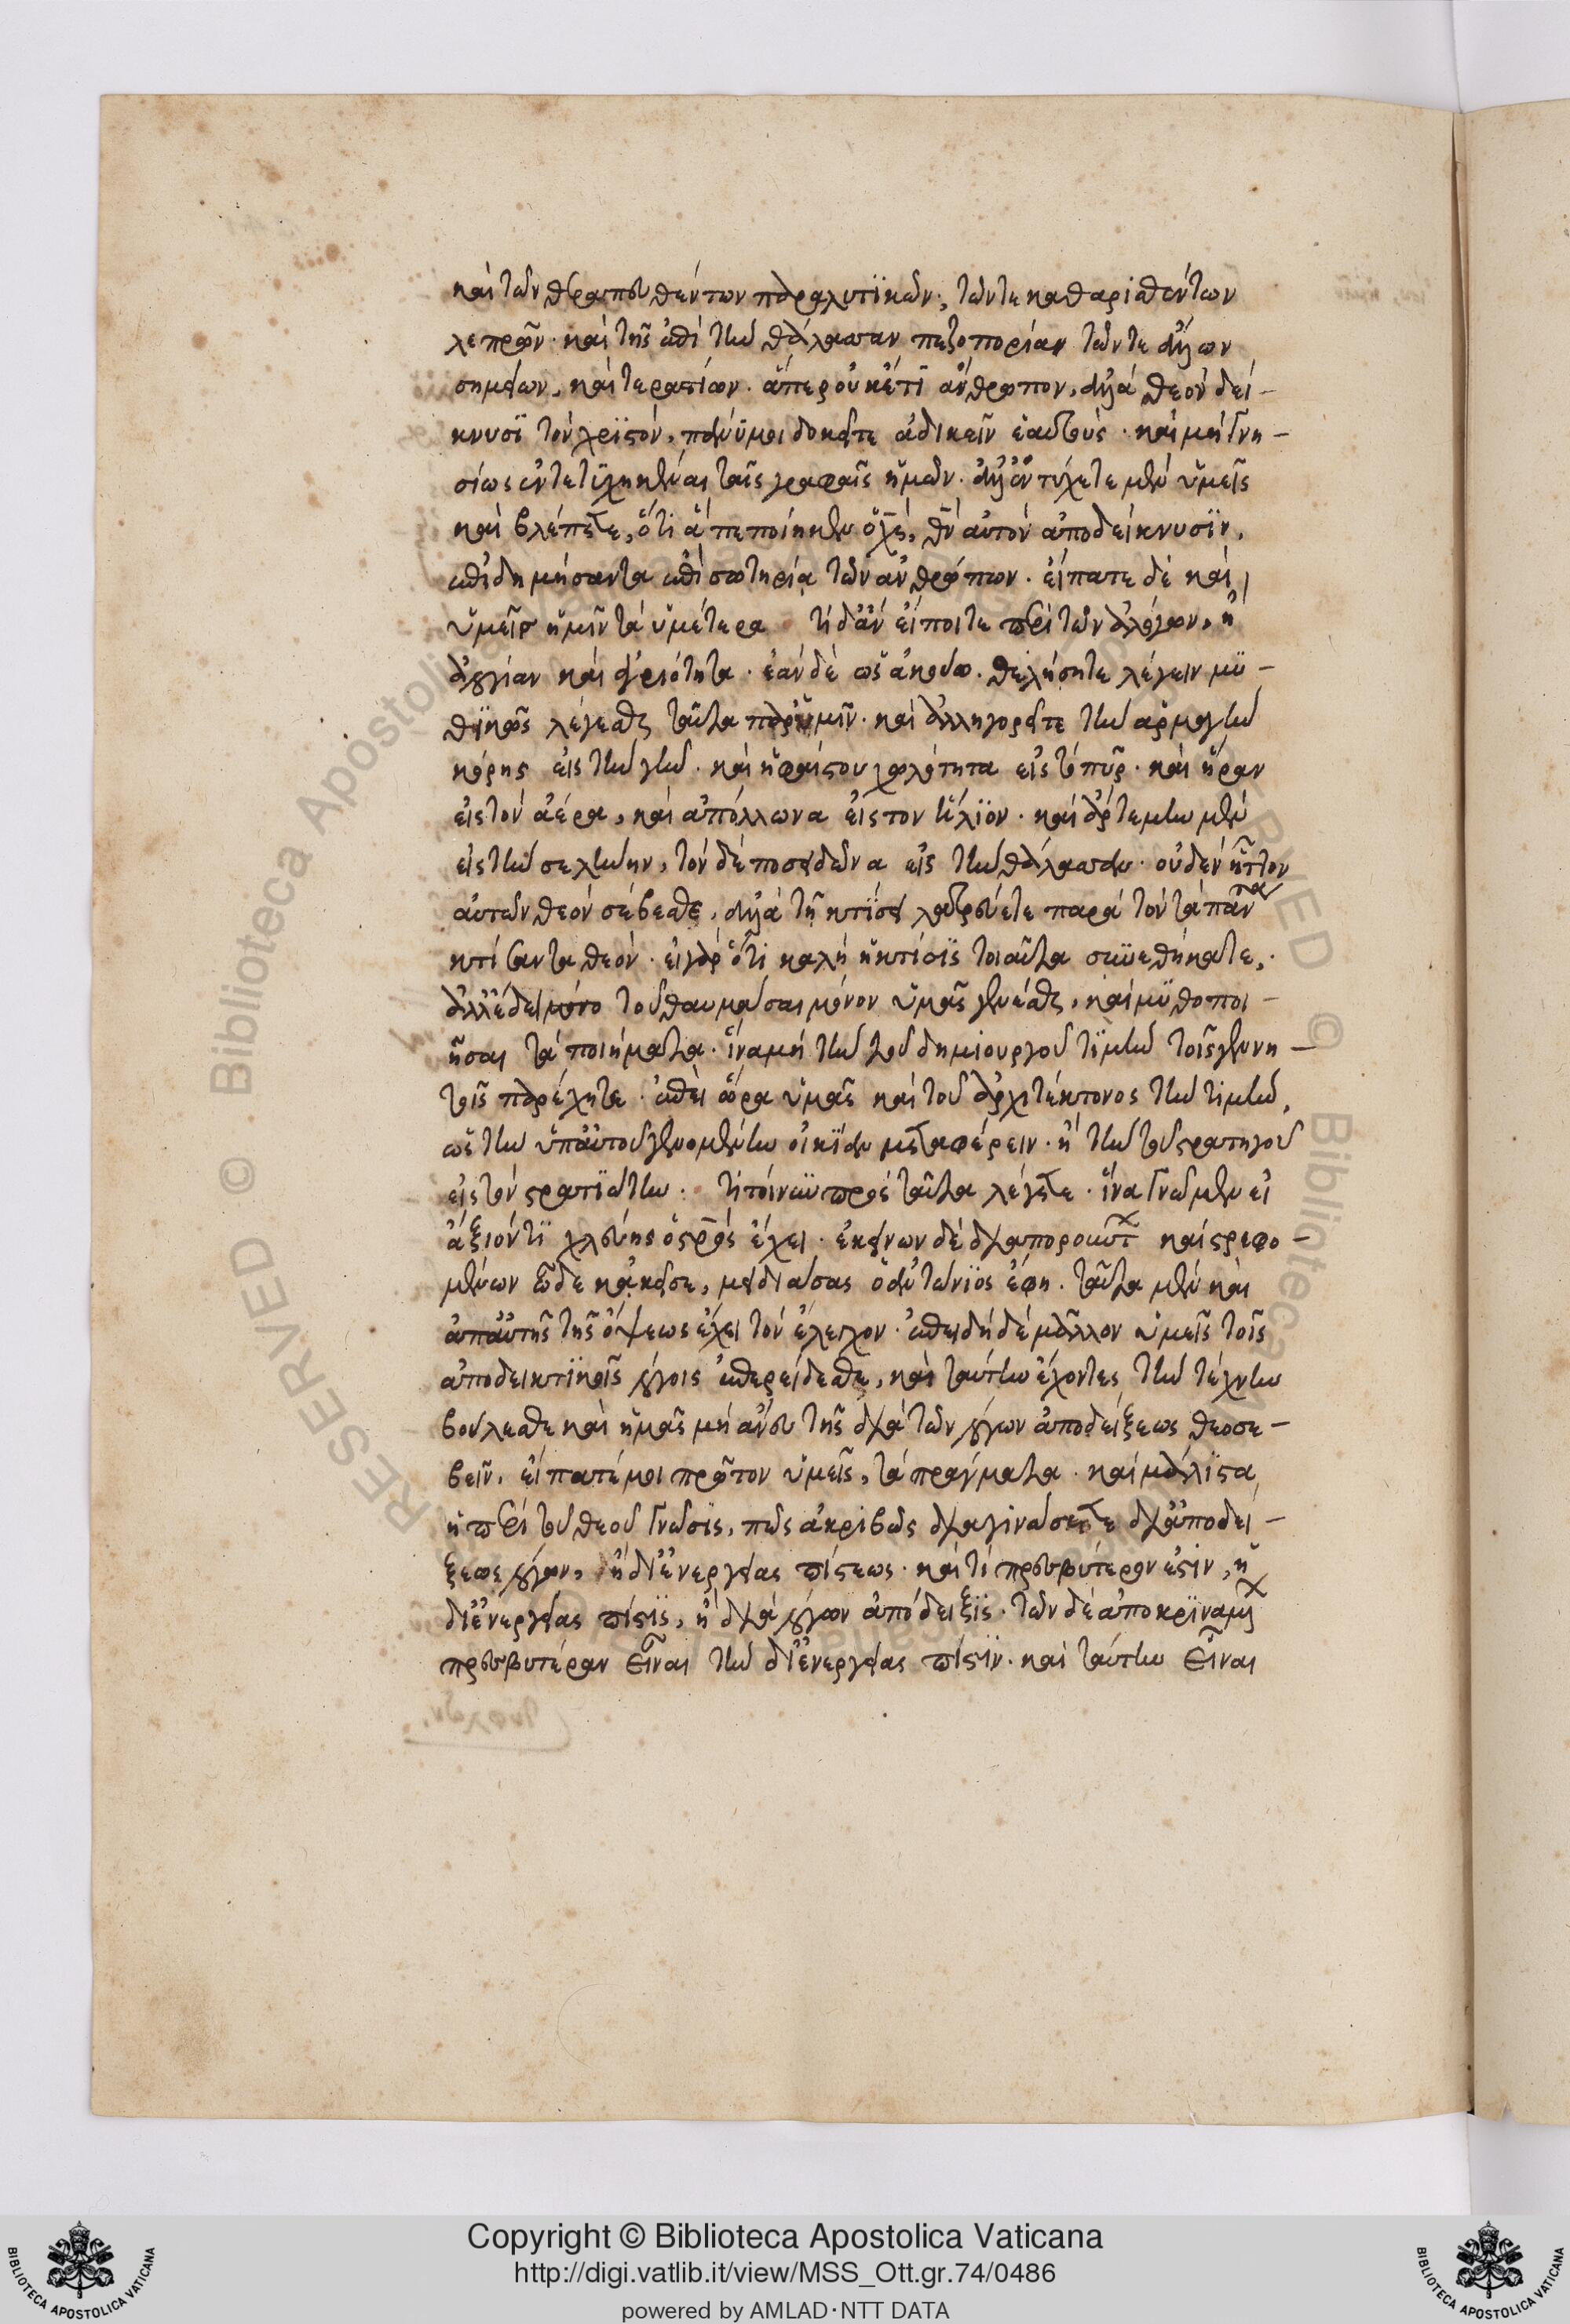 καὶ τῶν θεραπευθέντων παραλυτικῶν, τῶν τε καθαρισθέντων
λεπρῶν· καὶ τῆς ἐπὶ τὴν θάλασσαν πεζοπορίαν τῶν τε ἄλλων
σημείων, καὶ τεραστίων· ἅπερ οὐκέτι ἄνθρωπον, ἀλλὰ θεὸν δεί-
κνυσι τὸν χριστὸν, πάνυ μοι δοκεῖτε ἀδικεῖν ἑαυτοὺς· καὶ μὴ γνη-
σίως ἐντετυχηκέναι ταῖς γραφαῖς ἡμῶν· ἀλλ' ἐντύχετε μὲν ὑμεῖς
καὶ βλέπετε, ὅτι ἃ πεποίηκεν ὁ χς, θν αὐτὸν ἀποδείκνυσιν,
ἐπιδημήσαντα ἐπὶ σωτηρίᾳ τῶν ἀνθρώπων· εἴπατε δὲ καὶ
ὑμεῖς ἡμῖν τὰ ὑμέτερα τί δ' ἂν εἴποιτε περὶ τῶν ἀλόγων, ἢ
ἀλογίαν καὶ ἀγριότητα· ἐὰν δὲ ὡς ἀκούω· θελήσητε λέγειν μυ-
θικῶς λέγεσθαι ταῦτα παρ' ὑμῖν· καὶ ἀλληγορεῖτε τὴν ἁρπαγὴν
κόρης εἰς τὴν γῆν· καὶ ἡφαίστου χωλότητα εἰς τὸ πῦρ· καὶ ἥραν
εἰς τὸν ἀέρα, καὶ ἀπόλλωνα εἰς τον ἥλιον· καὶ ἄρτεμιν μὲν
εἰς τὴν σελήνην, τὸν δὲ ποσειδῶνα εἰς τὴν θάλασσαν· οὐδὲν ἧττον
αὐτῶν θεὸν σέβεσθε, ἀλλὰ τῇ κτίσει λατρεύετε παρὰ τὸν τὰ πάντα
κτίσαντα θεόν· εἰ γὰρ ὅτι καλὴ ἡ κτίσις τοιαῦτα συνεθήκατε,
ἀλλ' ἔδει τοῦ θαυμάσαι μόνον ὑμᾶς γενέσθαι, καὶ μὴ θοποι-
ῆσαι τὰ ποιήματα· ἵνα μὴ τὴν τοῦ δημιουργοῦ τιμὴν τοῖς γενη-
τοῖς παρέχητε· ἐπεὶ ὥρα ὑμᾶς καὶ τοῦ ἀρχιτέκτονος τὴν τιμὴν,
ὡς τὴν ὑπ' αὐτοῦ γενομένην οἰκίαν μεταφέρειν· ἢ τὴν τοῦ στρατηγοῦ
εἰς τὸν στρατιώτην· τί τοίνυν πρὸς ταῦτα λέγετε· ἵνα γνῶμεν εἰ
ἄξιόν τι χλεύης ὁ στρος ἔχει· ἐκείνων δὲ διαπορουντ καὶ στρεφο-
μένων ὧδε κἀκεῖσε, μειδιάσας ὁ ἀντώνιος ἔφη· ταῦτα μὲν καὶ
ἀπ' αὐτῆς τῆς ὄψεως ἔχει τὸν ἔλεγχον· ἐπειδὴ δὲ μᾶλλον ὑμεῖς τοῖς
ἀποδεικτικοῖς λόγοις ἐπερείδεσθε, καὶ ταύτην ἔχοντες τὴν τέχνην
βούλεσθε καὶ ἡμᾶς μὴ ἄνευ τῆς διὰ τῶν λόγων ἀποδείξεως θεοσε-
βεῖν, εἴπατέ μοι πρῶτον ὑμεῖς, τὰ πράγματα· καὶ μάλιστα
ἡ περὶ τοῦ θεοῦ γνῶσις, πῶς ἀκριβῶς διαγινώσκεται δι' ἀποδεί-
ξεως λόγων, ἢ δι' ἐνεργείας πίστεως· καὶ τί πρεσβύτερον ἐστιν, ἡ
δι' ἐνεργείας πίστις, ἢ διὰ λόγων ἀπόδειξις· τῶν δὲ ἀποκριναμ
πρεσβυτέραν εἶναι τὴν δι' ἐνεργείας πίστιν· καὶ ταύτην εἶναι
Copyright © Biblioteca Apostolica Vaticana
http://digi.vatlib.it/view/MSS_Ott.gr.74/0486
powered by AMLAD·NTT DATA